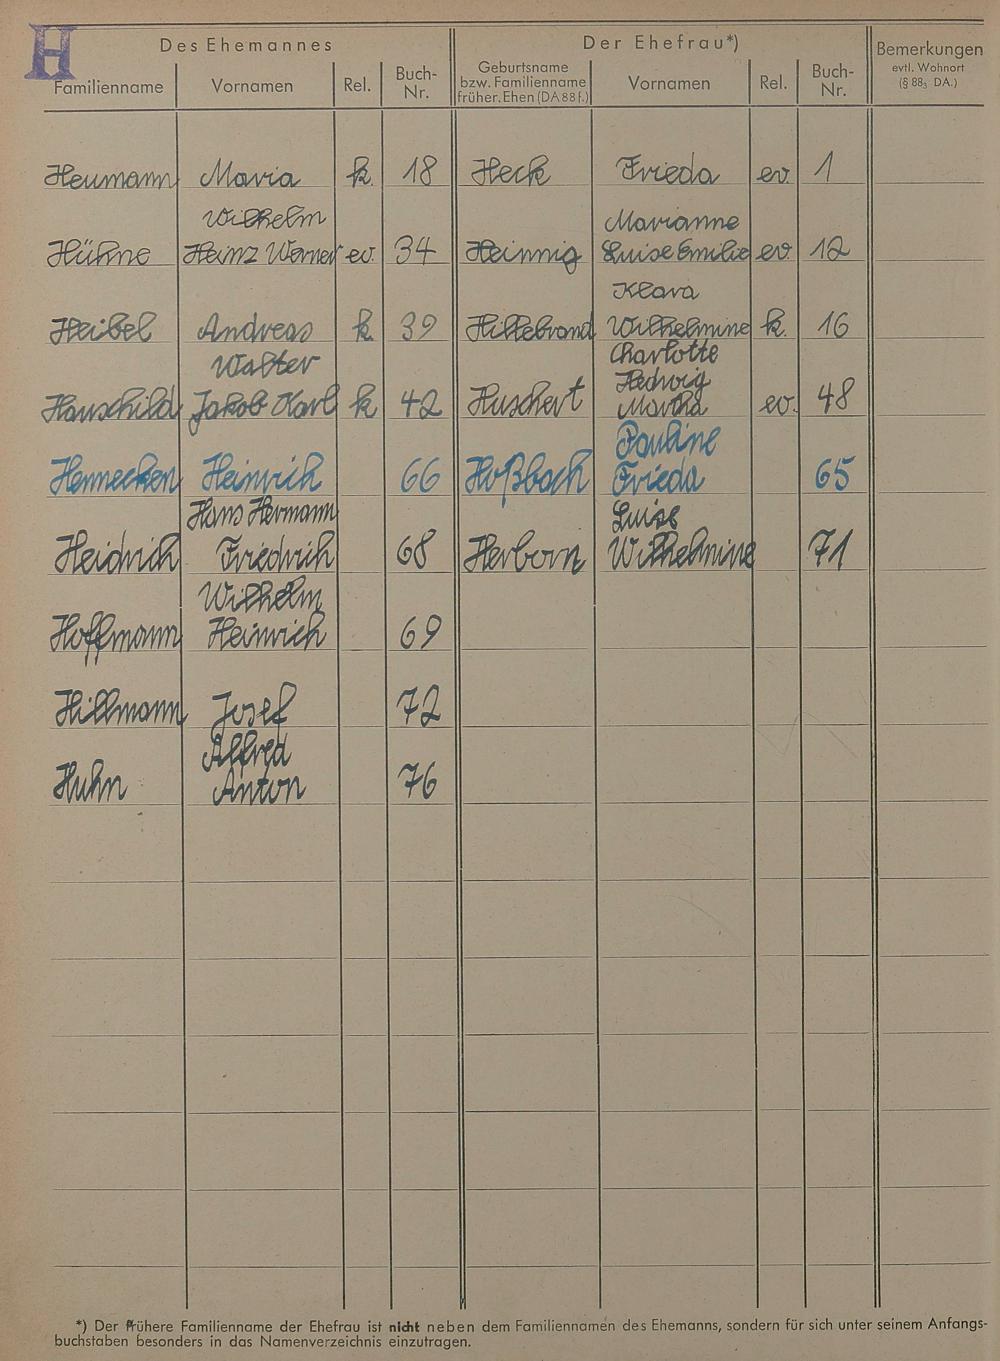 H
Des Ehemannes
Der Ehefrau*)
Bemerkungen
evtl. Wohnort
(§ 88₃ DA.)
Familienname Vornamen Rel. Buch-Nr.
Geburtsname
bzw. Familienname
früher. Ehen (DA 88 f.)
Vornamen Rel. Buch-Nr.
Heumann Maria k. 18 Heck Frieda ev. 1
Wilhelm Marianne
Hühne Heinz Werner ev. 34 Heinnig Luise Emilie ev. 12
Klara
Heibel Andreas k. 39 Hillebrand Wilhelmine k. 16
Walter Charlotte
Hedwig
Hauschild Jakob Karl k 42 Huschert Martha ev. 48
Pauline
Hennecken Heinrich 66 Hoßbach Frieda 65
Hans Hermann Luise
Heidrich Friedrich 68 Herborn Wilhelmine 71
Wilhelm
Hoffmann Heinrich 69
Hillmann Josef 72
Alfred
Huhn Anton 76
*) Der frühere Familienname der Ehefrau ist nicht neben dem Familiennamen des Ehemanns, sondern für sich unter seinem Anfangs-
buchstaben besonders in das Namenverzeichnis einzutragen.